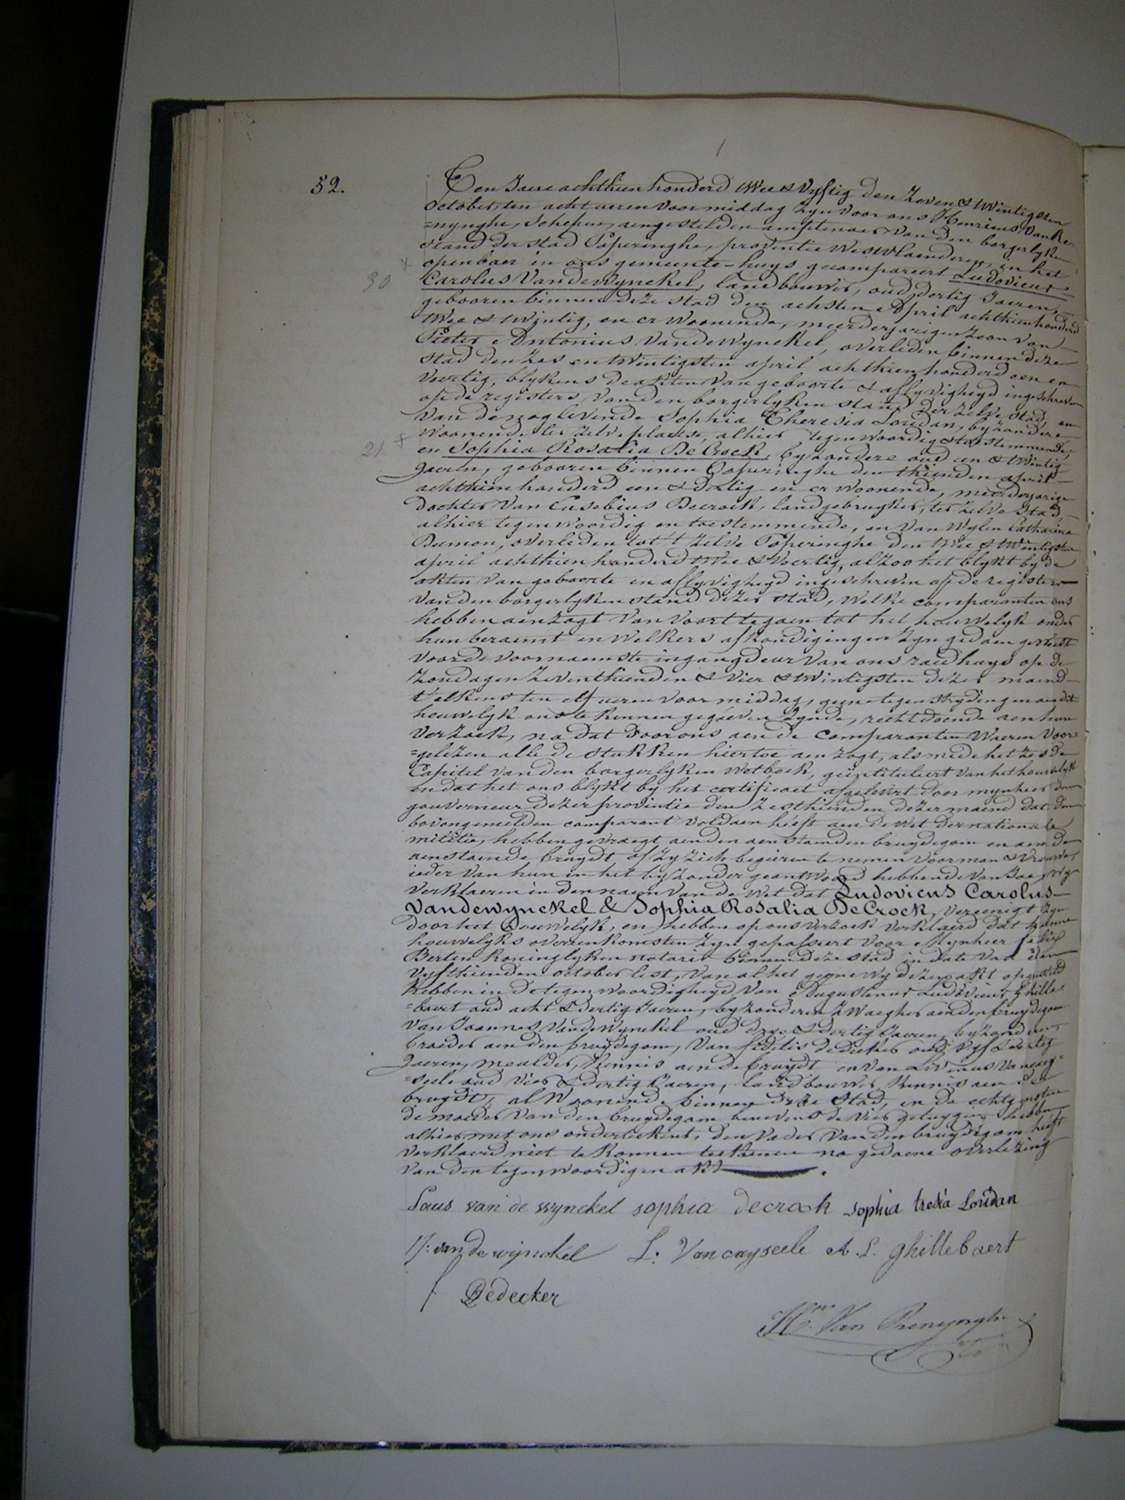 52.
Ten Jaere achthien honderd twee & vyftig den zeven & twintigsten
october, ten acht ueren voormiddag zyn voor ons Henricus VanRe-
=nynghe, Schepen, aengestelden amptenaer van den borgerlyken
stand der stad Poperinghe, provintie Westvlaenderen, in het
openbaer in ons gemeente-huys gecompareert Ludovicus
30 x Carolus Vandewynckel, landbouwer, oud dertig Jaeren,
gebooren binnen deze stad den achsten april achthien honderd
twee & twintig, en er woonende, meerderjarigen zoon van
Pieter Antonius Vandewynckel, overleden binnen deze
stad den zes en twintigsten april achthien honderd een en
veertig, blykens de akten van geboorte & aflyvigheyd ingeschreven
op de registers van den borgerlyken stand der zelve stad, en
van de nog levende Sophia Theresia Loudan, byzondere
woonende ter zelve plaetse, alhier tegenwoordig & toestemmende,
21 x en Sophia Rosalia De Crock, byzondere oud een & twintig
Jaeren, gebooren binnen Poperinghe den thienden april
achthien honderd een & dertig en er woonende, meerderjarige
dochter van Eusebius Decrock, landgebruyker, ter zelve stad
alhier tegenwoordig en toestemmende, en van wylen Catharina
Dumon, overleden tot 't zelve Poperinghe den twee & twintigsten
april achthien honderd twee & veertig, al zoo het blykt by de
akten van geboorte en aflyvigheyd ingeschreven op de registers
van den borgerlyken stand dezer stad, welke comparanten ons
hebben aenzogt van voort tegaen tot het houwelyk onder
hun beraemt en welkers afkondigingen zyn gedaen geweest
voor de voornaemste ingangdeur van ons raedhuys op de
zondagen zeventhienden & vier & twintigsten dezer maend
t'elkens ten elf ueren voormiddag, geene tegenstrydinge aen dit
houwelyk ons te kennen gegeven zynde, recht doende aen hun
verzoek, na dat door ons aen de comparanten waeren voor-
=gelezen alle de stukken hiertoe aenzogt, als mede het zesde
Capitel van den borgerlyken wetboek, geïntituleert van het houwelyk
en dat het ons blykt by het certificaet afgelevert door mynheer den
gouverneur dezer provintie den zesthienden dezer maend dat den
bovengemelden comparant voldaen heeft aen de wet der nationale
militie, hebben gevraegt aen den aenstaenden bruydegom en aen de
aenstaende bruydt, of zy zich begeeren te nemen voor man & vrouwe,
ieder van hun in het byzonder geantwoord hebbende van Jae, wy
verklaeren in den naem van de wet dat Ludovicus Carolus
Vandewynckel & Sophia Rosalia De Crock, vereenigt zyn
door het houwelyk, en hebben op ons verzoek verklaerd dat hunne
houwelyks overeenkomsten zyn gepasseert voor Mynheer felix
Berten koninglyken notaris binnen deze stad in date van den
vyfthienden october lest, van al het gene wy dezen akt opgesteld
hebben in de tegenwoordigheyd van Augustinus Ludovicus Ghille-
=baert oud acht & dertig Jaeren, byzonderen zwaeger aen den bruydegom
van Joannes Vandewynckel oud drye & dertig Jaeren, byzonderen
broeder aen den bruydegom, van fidelis Dedeker oud vyf & veertig
Jaeren, meulder, kennis aen de bruydt en van Livinus Vancay-
=seele oud vier & dertig Jaeren, landbouwer kennis aen de
bruydt, al woonende binnen deze stad, en de echtgenoten
de moeder van den bruydegom benevens de vier getuygen hebben
alhier met ons onderteekent, den vader van den bruydegom heeft
verklaerd niet te konnen teekenen na gedaene overlezing
van den tegenwoordigen akt.
Louis van de wynckel sophia decrock sophia tresia Loudan
J. van de wijnckel L. Vancayseele A. L. ghillebaert
f Dedecker
Hri Van Renynghe